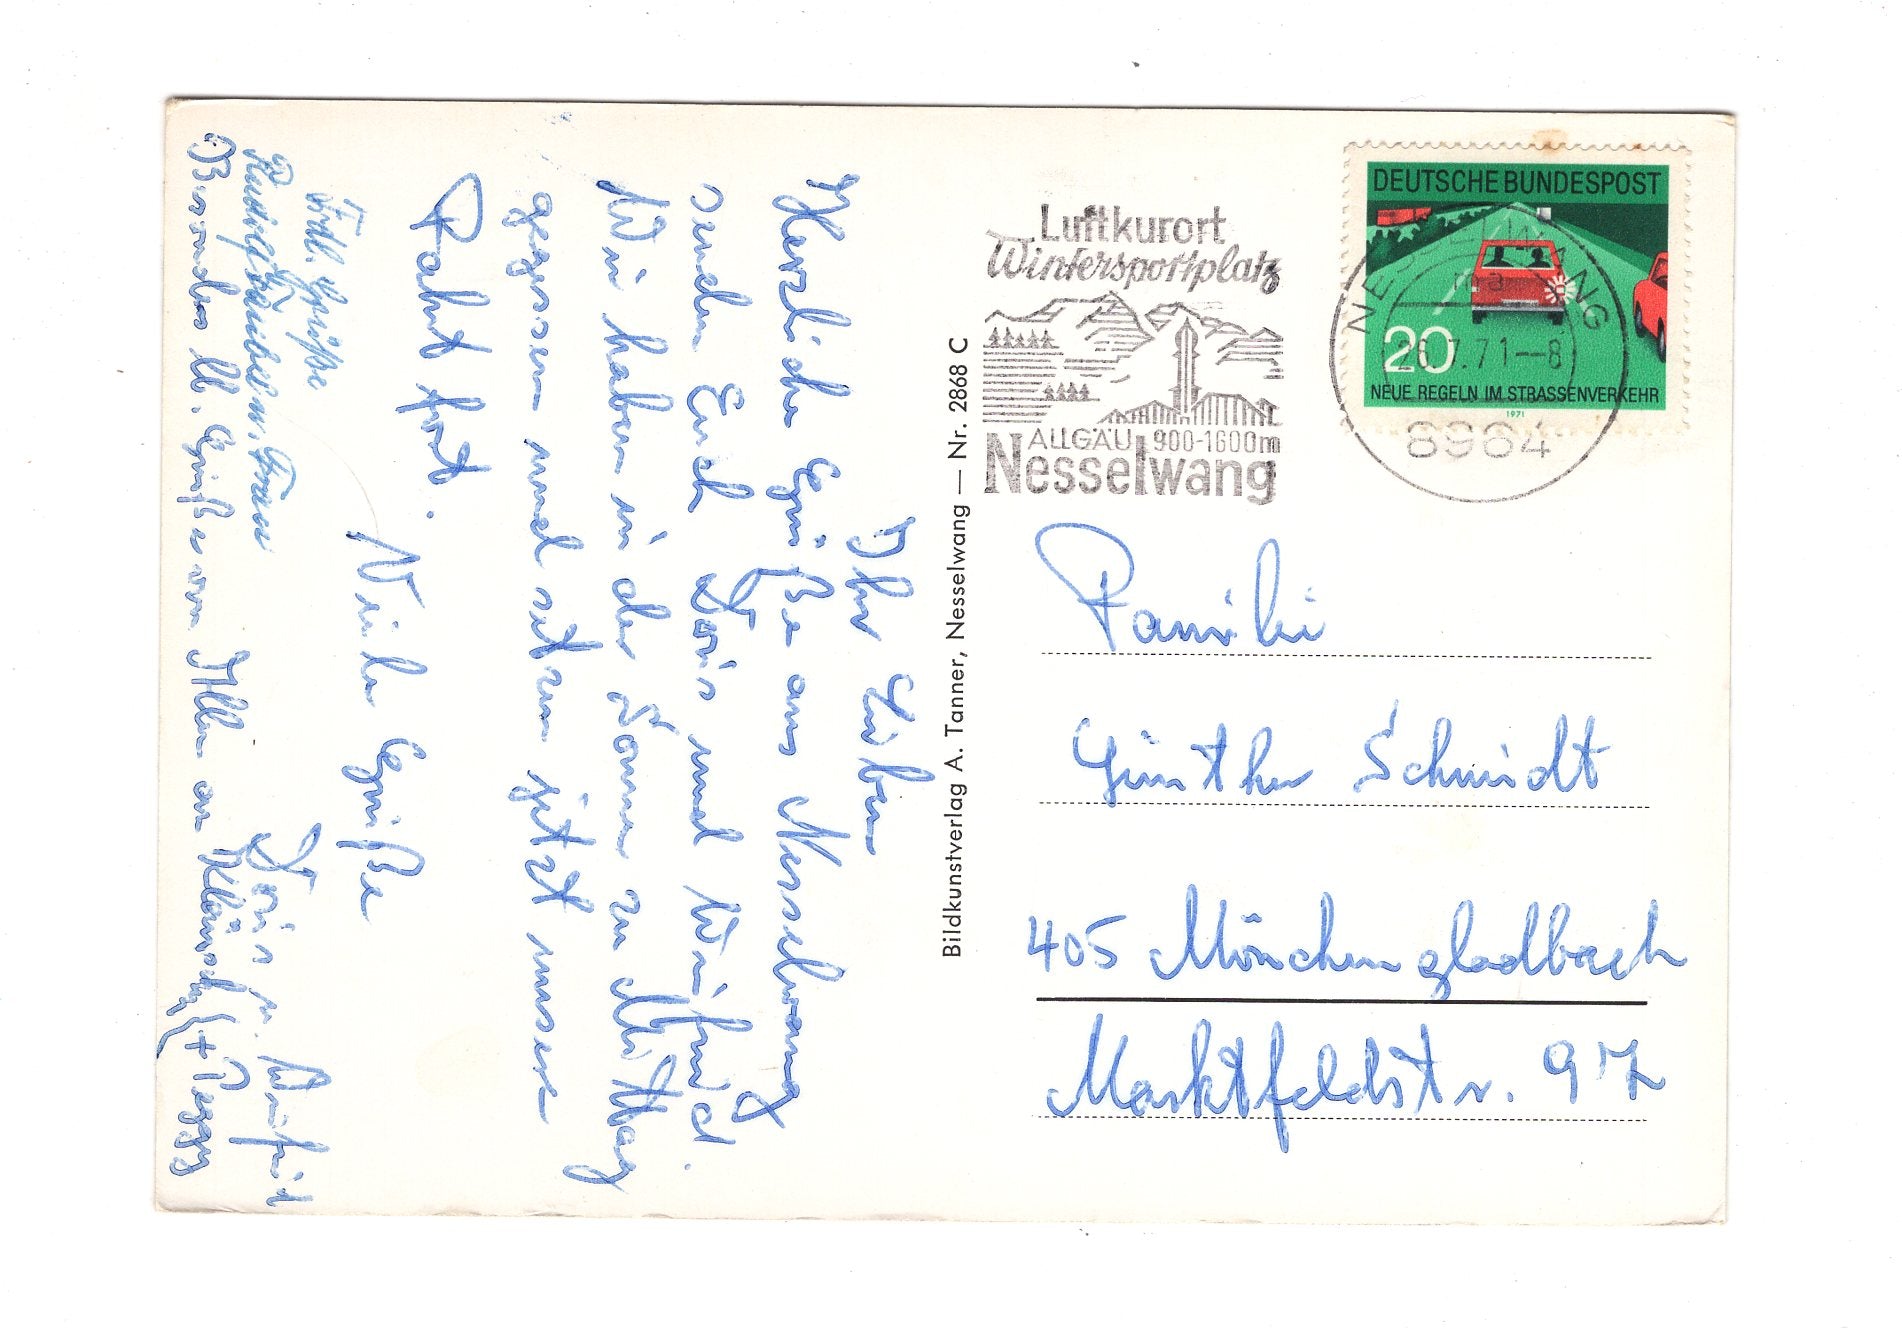 Ihr Lieben
Herzliche Grüße aus Nesselwang
senden Euch Doris und Winfried.
Wir haben in der Sonne zu Mittag
gegessen und setzen jetzt unsere
Fahrt fort.
Viele Grüße
Doris u. Winfried
Frdl. Grüße
Rudolf u. Frau
Besonders ll. Grüße von Illa an + Peggy
Bildkunstverlag A. Tanner, Nesselwang — Nr. 2868 C
Luftkurort
Wintersportplatz
ALLGÄU 900-1600m
Nesselwang
DEUTSCHE BUNDESPOST
20
NEUE REGELN IM STRASSENVERKEHR
1971
NESSELWANG
26.7.71-8
8964
Familie
Günther Schmidt
405 Mönchengladbach
Marktfeldstr. 97